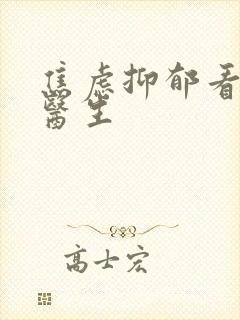 焦虑抑郁看
醫生
高士宏